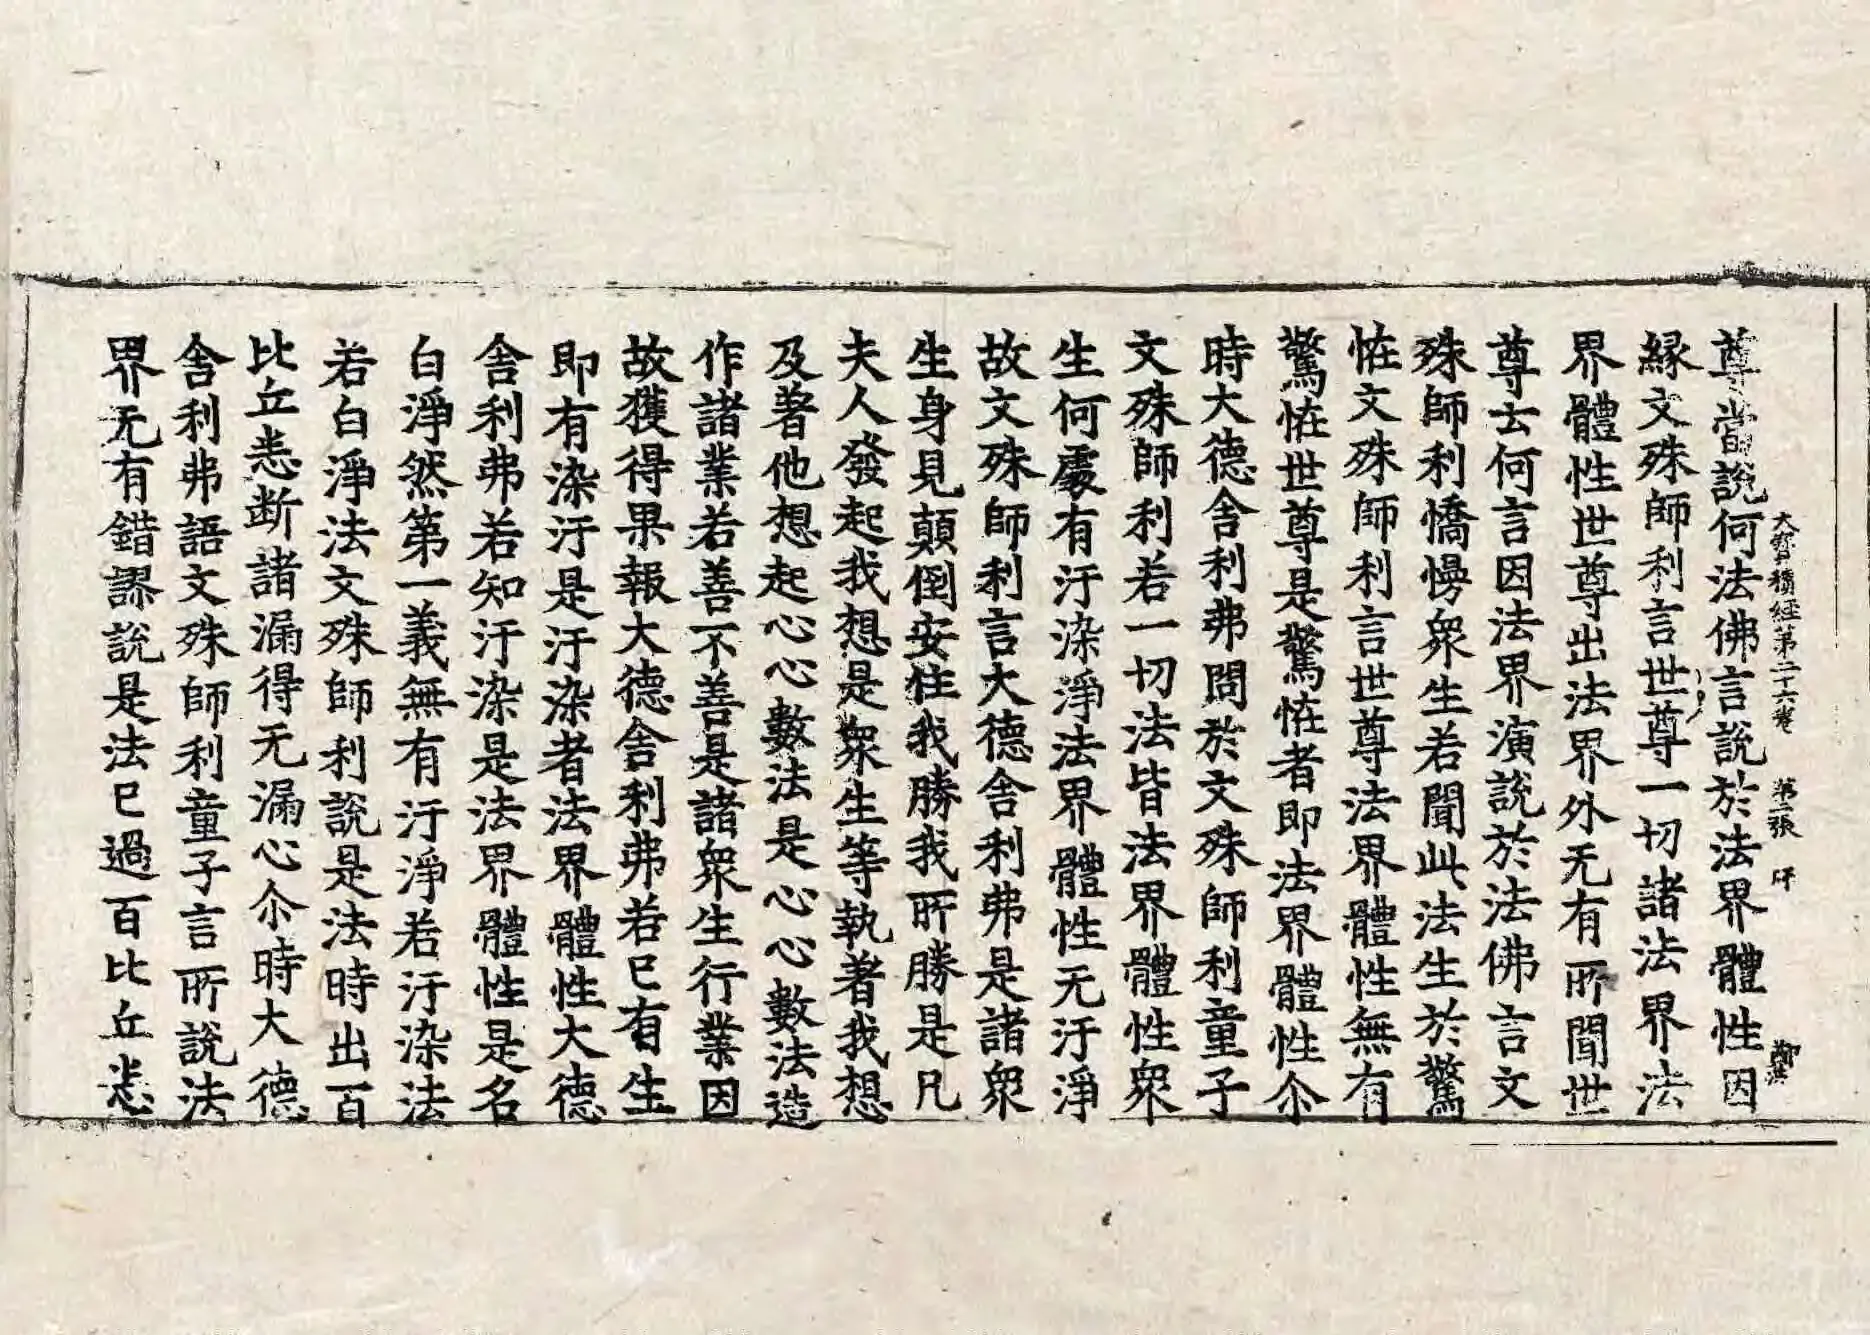 大寶積經第二十六卷 第二張
尊當說何法佛言說於法界體性因
緣文殊師利言世尊一切諸法界法
界體性世尊出法界外无有所聞世
尊云何言因法界演說於法佛言文
殊師利憍慢衆生若聞此法生於驚
恠文殊師利言世尊法界體性無有
驚恠世尊是驚恠者即法界體性尒
時大德舍利弗問於文殊師利童子
文殊師利若一切法皆法界體性衆
生何處有汙染淨法界體性无汙淨
故文殊師利言大德舍利弗是諸衆
生身見顛倒安住我勝我所勝是凡
夫人發起我想是衆生等執著我想
及著他想起心心數法是心心數法造
作諸業若善不善是諸衆生行業因
故獲得果報大德舍利弗若已有生
即有染汙是汙染者法界體性大德
舍利弗若知汙染是法界體性是名
白淨然第一義無有汙淨若汙染法
若白淨法文殊師利說是法時出百
比丘悉断諸漏得无漏心尒時大德
舍利弗語文殊師利童子言所說法
界无有錯謬說是法已過百比丘悉